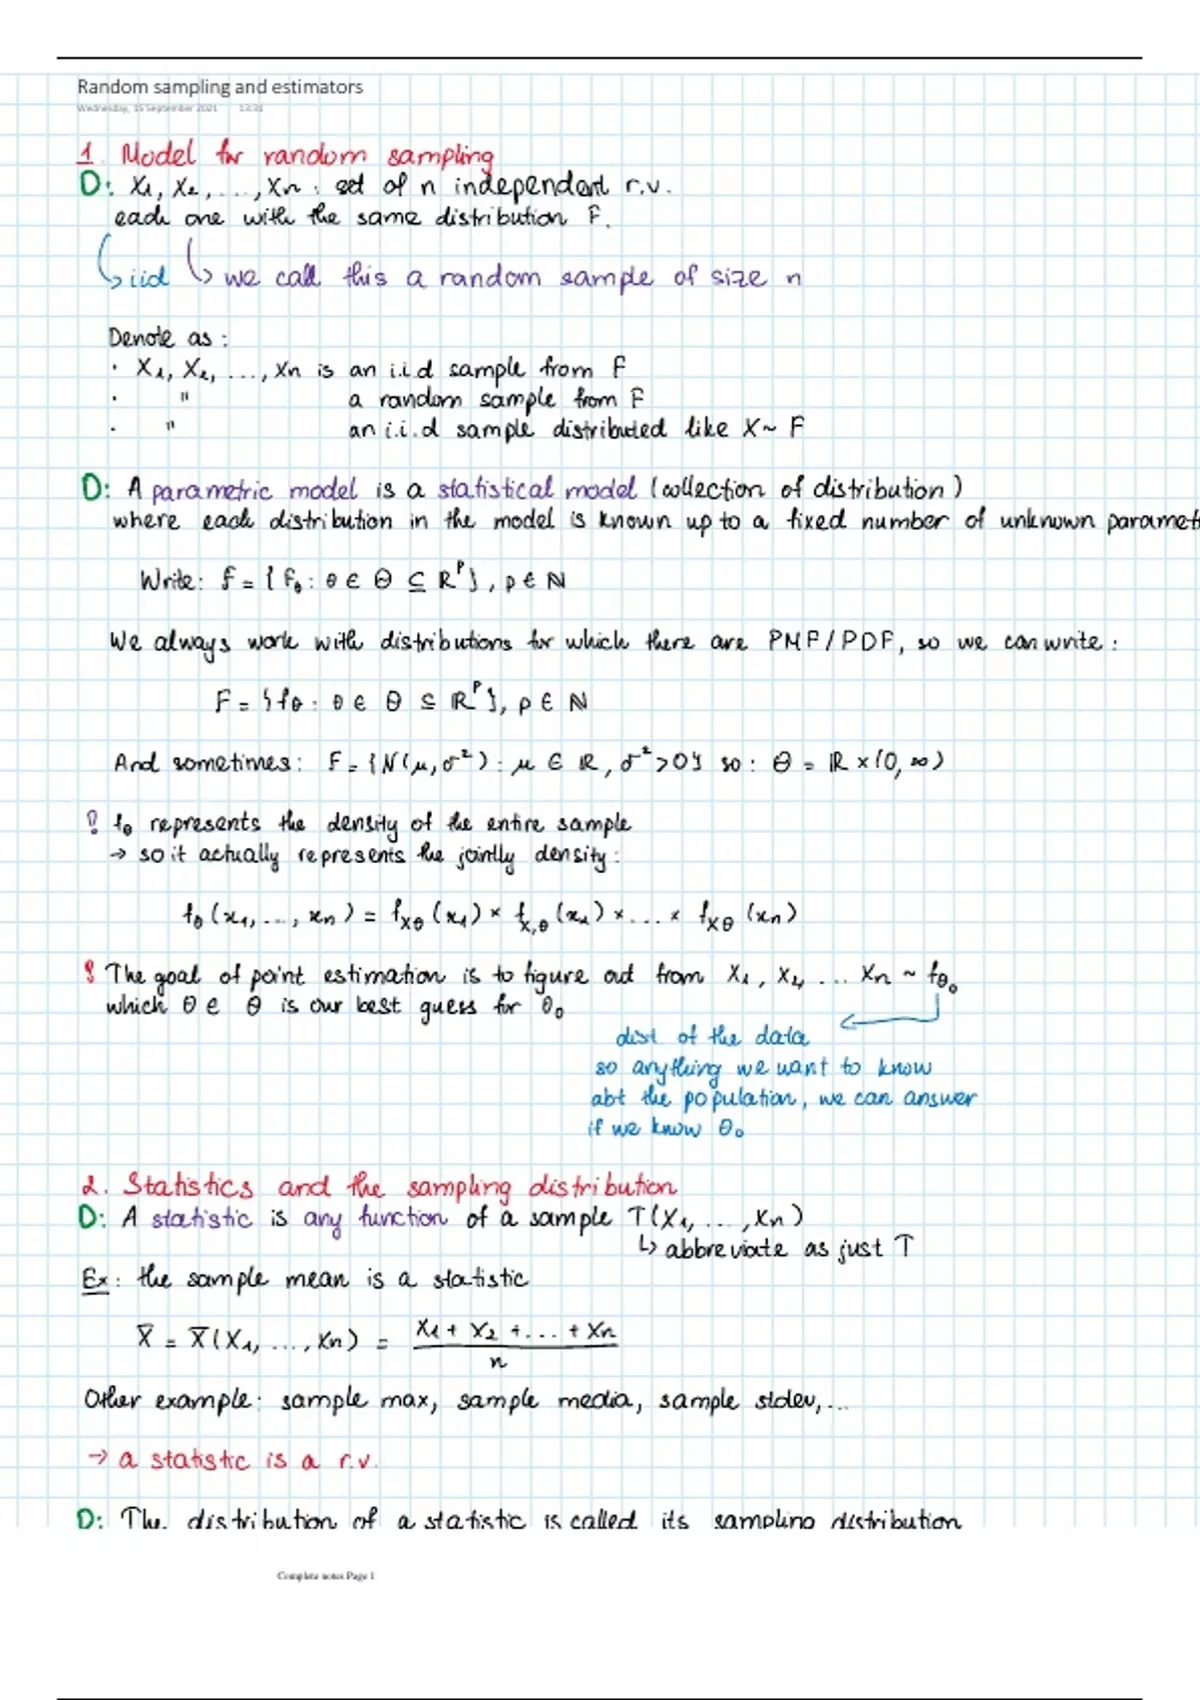 Random sampling and estimators
Wednesday, 15 September 2021 13:31
1. Model for random sampling
D: X₁, X₂, ..., Xn : set of n independent r.v.
each one with the same distribution F.
↳ iid ↳ we call this a random sample of size n
Denote as :
· X₁, X₂, ..., Xn is an i.i.d sample from F
· " a random sample from F
· " an i.i.d sample distributed like X ~ F
D: A parametric model is a statistical model (collection of distribution)
where each distribution in the model is known up to a fixed number of unknown paramet
Write: F = { Fθ : θ ∈ Θ ⊆ ℝᵖ}, p ∈ ℕ
We always work with distributions for which there are PMF/PDF, so we can write :
F = {fθ : θ ∈ Θ ⊆ ℝᵖ}, p ∈ ℕ
And sometimes: F = {N(μ, σ²) : μ ∈ ℝ, σ² > 0} so : Θ = ℝ × (0, ∞)
! fθ represents the density of the entire sample
→ so it actually represents the jointly density :
fθ (x₁, ..., xn) = fXθ (x₁) × fX,θ (x₂) × ... × fXθ (xn)
! The goal of point estimation is to figure out from X₁, X₂, ... Xn ~ fθ₀
which θ ∈ Θ is our best guess for θ₀
dist of the data
so anything we want to know
abt the population, we can answer
if we know θ₀
2. Statistics and the sampling distribution
D: A statistic is any function of a sample T(X₁, ..., Xn)
↳ abbreviate as just T
Ex: the sample mean is a statistic
X̄ = X̄(X₁, ..., Xn) = (X₁ + X₂ + ... + Xn) / n
Other example: sample max, sample media, sample stdev, ...
→ a statistic is a r.v.
D: The distribution of a statistic is called its sampling distribution
Complete notes Page 1